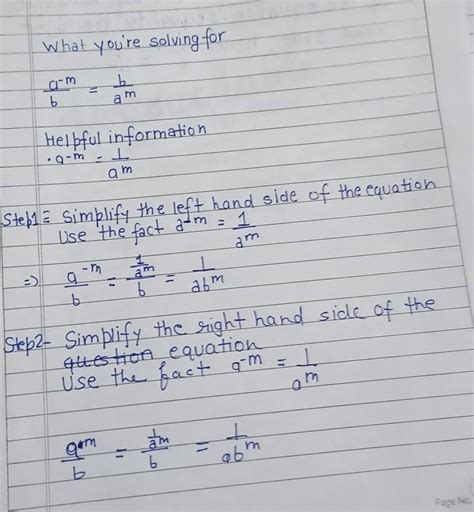 What you're solving for
a⁻ᵐ/b = b/aᵐ
Helpful information
• a⁻ᵐ = 1/aᵐ
Step1 = Simplify the left hand side of the equation
Use the fact a⁻ᵐ = 1/aᵐ
=> a⁻ᵐ/b = (1/aᵐ)/b = 1/abᵐ
Step2- Simplify the right hand side of the
question equation
Use the fact a⁻ᵐ = 1/aᵐ
aᵐ/b = (1/aᵐ)/b = 1/abᵐ
Page No.